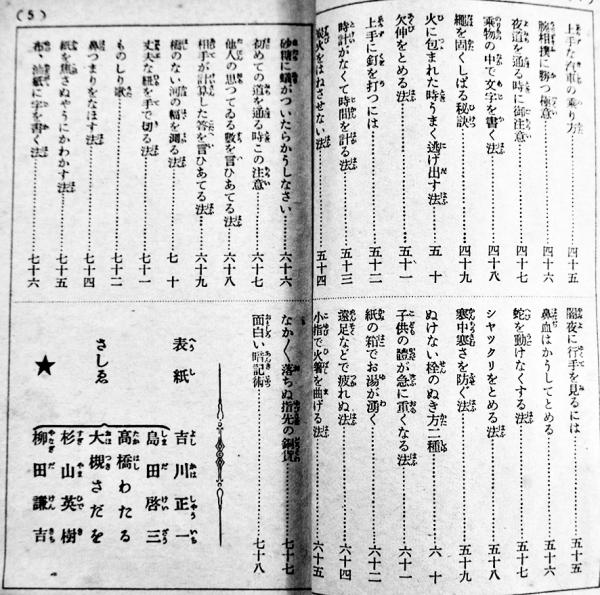 上手な汽車の乗り方……四十五
腕相撲に勝つ極意……四十六
夜道を通る時に御注意……四十七
乗物の中で文字を書く法……四十八
繩を固くしばる秘訣……四十九
火に包まれた時うまく逃げ出す法……五十
欠伸をとめる法……五十一
上手に釘を打つには……五十二
時計がなくて時間を計る法……五十三
炭火をはねさせない法……五十四
闇夜に行手を見るには……五十五
鼻血はかうしてとめる……五十六
蛇を動けなくする法……五十七
シヤツクリをとめる法……五十八
寒中寒さを防ぐ法……五十九
ぬけない栓のぬき方二種……六十
子供の體が急に重くなる法……六十一
紙の箱でお湯が湧く……六十二
遠足などで疲れぬ法……六十四
小指で火箸を曲げる法……六十五
(5)
砂糖に蟻がついたらかうしなさい……六十六
初めての道を通る時この注意……六十七
他人の思つてゐる數を言ひあてる法……六十八
相手が計算した答を言ひあてる法……六十九
橋のない河の幅を測る法……七十
丈夫な紐を手で切る法……七十一
ものしり歌……七十二
鼻つまりをなほす法……七十四
紙を焦さぬやうにかわかす法……七十五
布、油紙に字を書く法……七十六
なか〳〵落ちぬ指先の銅貨……七十七
面白い暗記術……七十八
表紙 吉川正一
さしゑ
島田啓三
高橋わたる
大槻さだを
杉山英樹
柳田謙吉
★